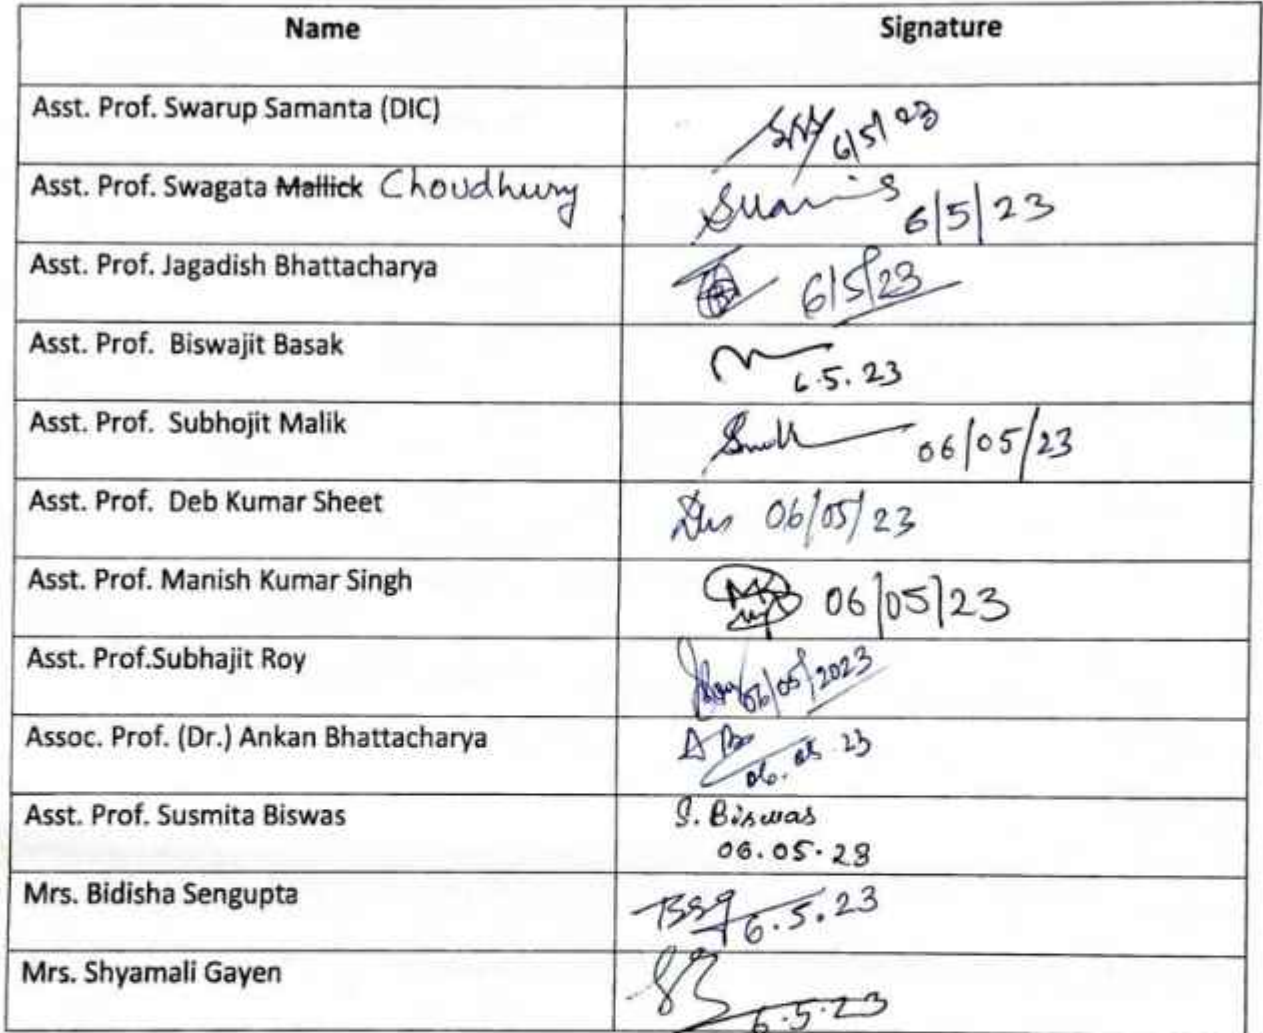 Name Signature
Asst. Prof. Swarup Samanta (DIC) 6/5/23
Asst. Prof. Swagata Mallick Choudhury 6/5/23
Asst. Prof. Jagadish Bhattacharya 6/5/23
Asst. Prof. Biswajit Basak 6.5.23
Asst. Prof. Subhojit Malik 06/05/23
Asst. Prof. Deb Kumar Sheet 06/05/23
Asst. Prof. Manish Kumar Singh 06/05/23
Asst. Prof.Subhajit Roy 06/05/2023
Assoc. Prof. (Dr.) Ankan Bhattacharya 06.05.23
Asst. Prof. Susmita Biswas S. Biswas
06.05.23
Mrs. Bidisha Sengupta BSg 6.5.23
Mrs. Shyamali Gayen 6.5.23